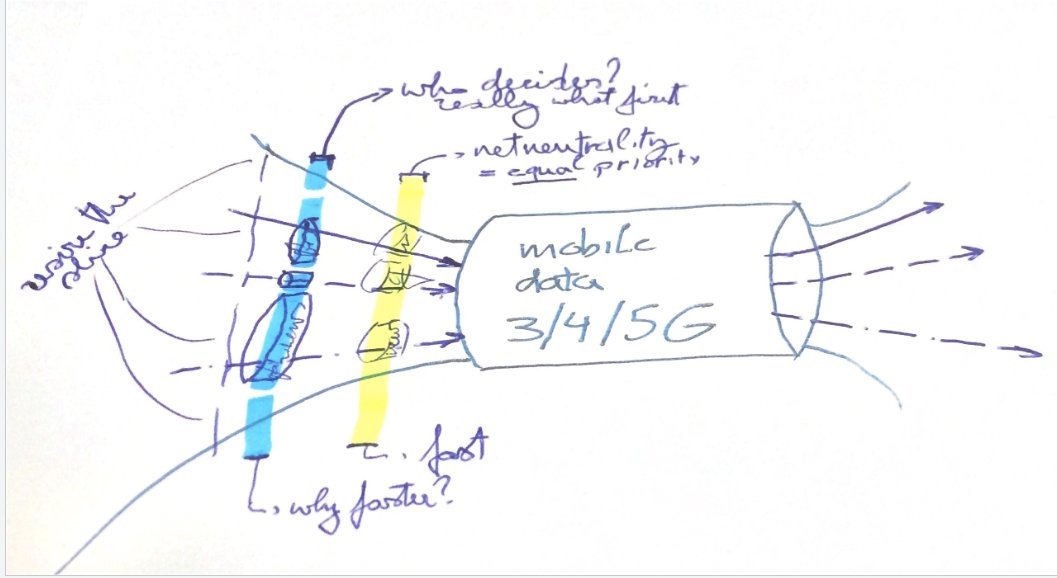 who decides?
really what first
netneutrality
= equal priority
the
slice
mobile
data
3/4/5G
fast
why faster?